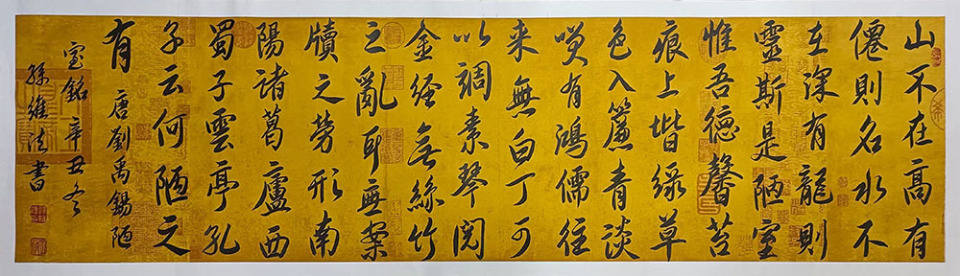 山不在高有
僊則名水不
在深有龍則
靈斯是陋室
惟吾德馨苔
痕上堦緑草
色入簾青談
咲有鴻儒往
来無白丁可
以調素琴閲
金經无絲竹
之亂耳無案
牘之勞形南
陽諸葛廬西
蜀子雲亭孔
子云何陋之
有
唐劉禹錫陋
室銘 辛丑冬
孫維法書